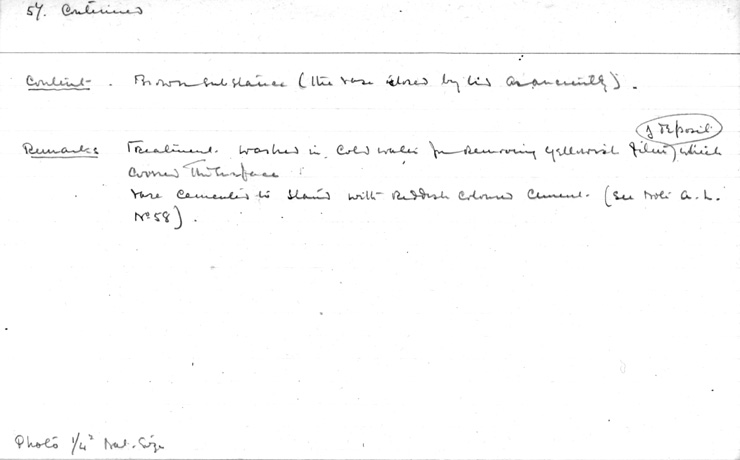 57. Continued
Content. Brown substance (the vase closed by lid as anciently).
of deposit
Remarks Treatment. Washed in cold water for removing yellowish film which
covered the surface
Vase cemented to stand with Reddish coloured cement. (See Note A.L.
No 58).
Photo 1/4" Nat. Size